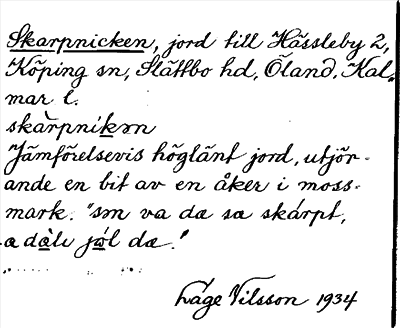 Skarpnicken, jord till Hässleby 2,
Köping sn, Slättbo hd, Öland, Kal-
mar l.
skàrpnikən
Jämförelsevis höglänt jord, utjör-
ande en bit av en åker i moss-
mark. "sm va da sa skárpt,
a dàlı jǫl da."
Låge Nilsson 1934